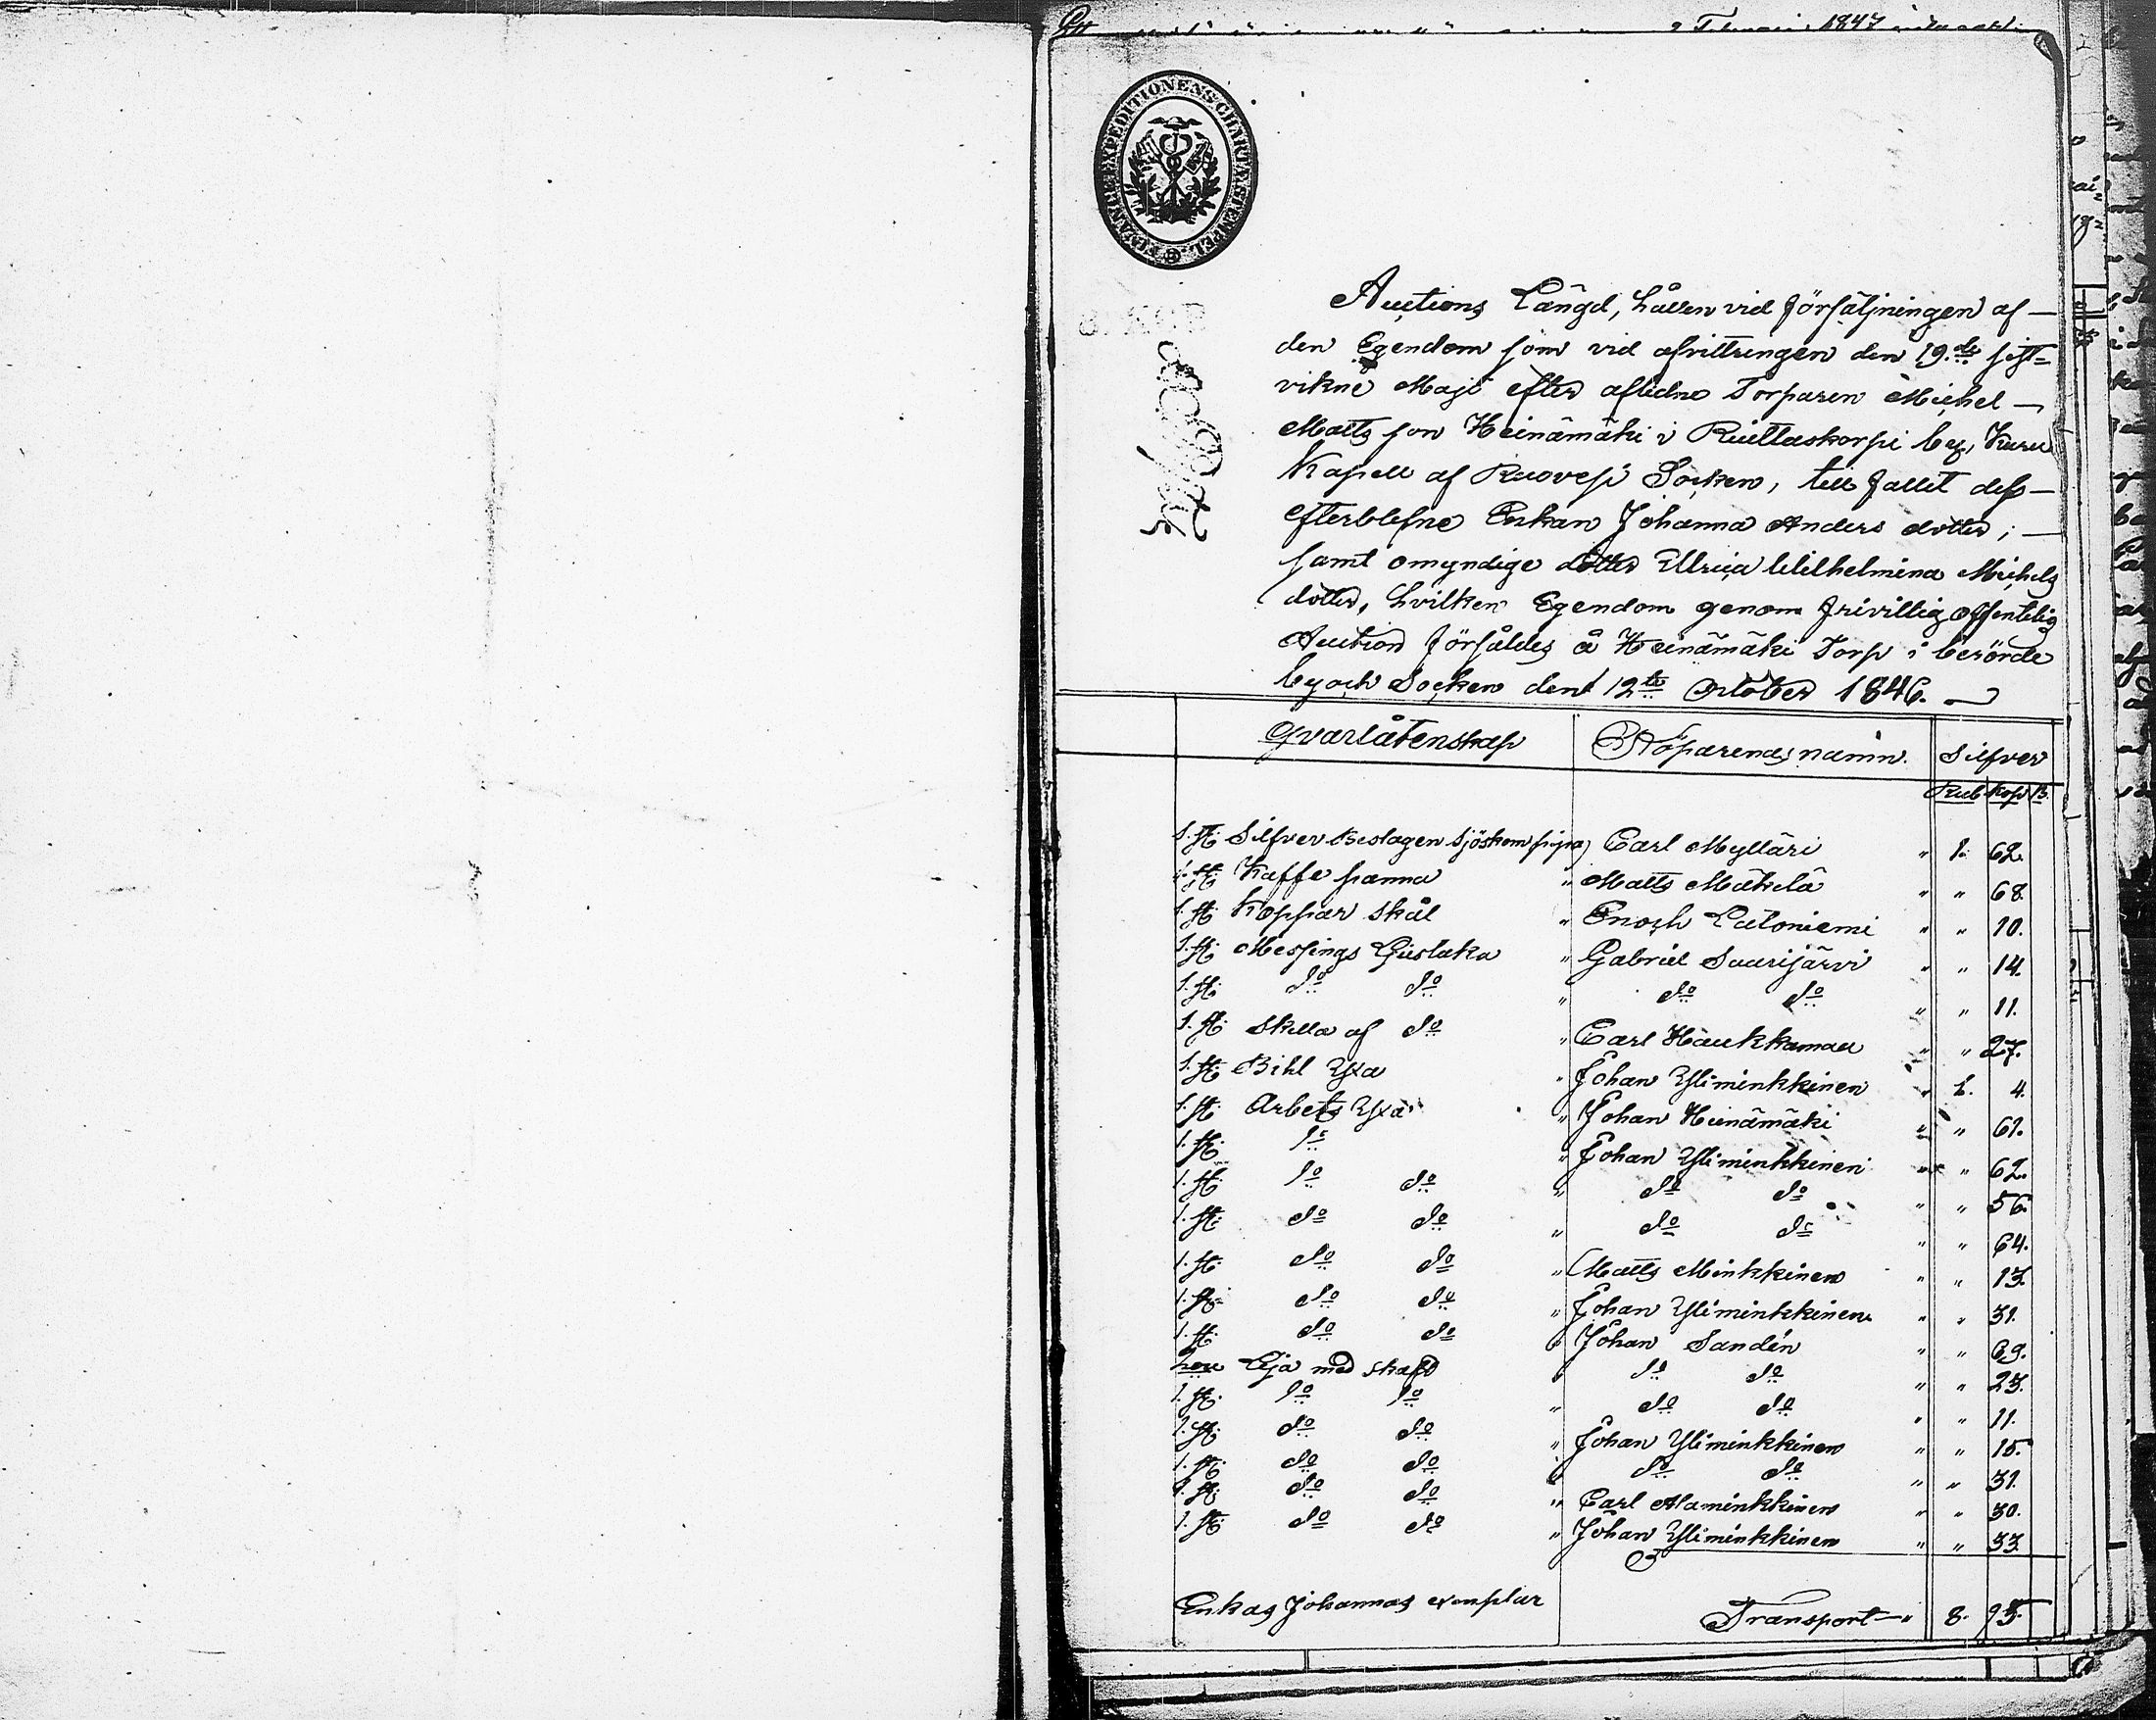 2 Februari 1847
FINLANDS EXPEDITIONENS CHARTÆ STEMPEL
Auctions Längd, hållen vid försäljningen af
den Egendom som vid afvittringen den 19.de sist=
vikne Maji efter aflidne Torparen Michel
Matts son Heinämäki i Riuttaskorpi by, Kuru
Kapell af Ruovesi Socken, till fallit dess
efterblefne Enkan Johanna Anders dotter;
samt omyndige dotter Ullrica Wilhelmina Michels
dotter, hvilken Egendom genom frivillig offentelig
Auction försåldes å Heinämäki Torp i berörde
by och Socken den 12te October 1846.
Qvarlåtenskap Köparenas namn. Silfver
Rub Kop
1. st. Silfver Beslagen Sjöskom pipa Carl Mylläri " 1. 62.
1. st. Kaffe panna " Matts Mäkelä " " 68.
1. st. Koppar skål " Enoch Latoniemi " " 10.
1. st. Messings Ljustaka " Gabriel Saarijärvi " " 14.
1. st. do do " do do " " 11.
1. st. Skilla af do " Carl Haukkamaa " " 27.
1. st. Bihl Yxa " Johan Yliminkkinen " 1. 4.
1. st. Arbets Yxa " Johan Heinämäki " " 61.
1. st. do " Johan Yliminkkinen " " 62.
1. st. do do " do do " " 56.
1. st. do do " do do " " 64.
1. st. do do " Matts Minkkinen " " 13.
1. st. do do " Johan Yliminkkinen " " 31.
1. st. do do " Johan Sandén " " 69.
Lija med skaft " do do " " 23.
1. st. do do " do do " " 11.
1. st. do do " Johan Yliminkkinen " " 15.
1. st. do do " do do " " 31.
1. st. do do " Carl Alaminkkinen " " 30.
1. st. do do " Johan Yliminkkinen " " 33.
Enkas Johannas exemplar Transport " 8. 95.